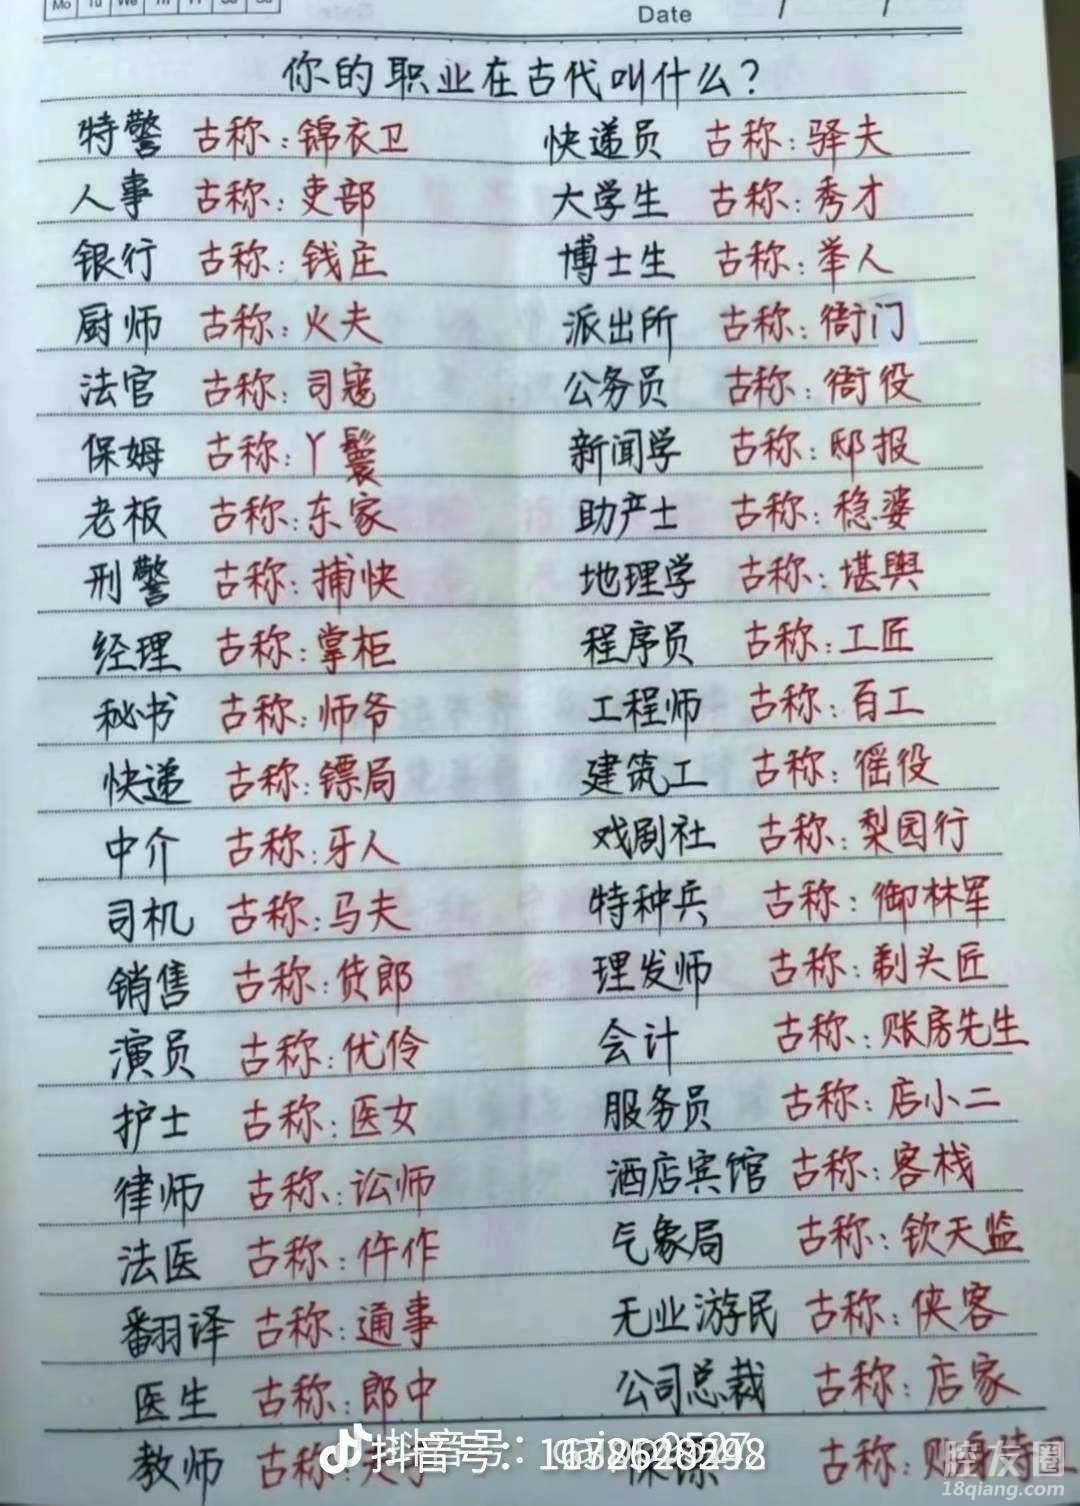 Mo Tu We Th Fr Sa Su
Date / /
你的职业在古代叫什么？
特警 古称：锦衣卫 快递员 古称：驿夫
人事 古称：吏部 大学生 古称：秀才
银行 古称：钱庄 博士生 古称：举人
厨师 古称：火夫 派出所 古称：衙门
法官 古称：司寇 公务员 古称：衙役
保姆 古称：丫鬟 新闻学 古称：邸报
老板 古称：东家 助产士 古称：稳婆
刑警 古称：捕快 地理学 古称：堪舆
经理 古称：掌柜 程序员 古称：工匠
秘书 古称：师爷 工程师 古称：百工
快递 古称：镖局 建筑工 古称：徭役
中介 古称：牙人 戏剧社 古称：梨园行
司机 古称：马夫 特种兵 古称：御林军
销售 古称：货郎 理发师 古称：剃头匠
演员 古称：优伶 会计 古称：账房先生
护士 古称：医女 服务员 古称：店小二
律师 古称：讼师 酒店宾馆 古称：客栈
法医 古称：仵作 气象局 古称：钦天监
翻译 古称：通事 无业游民 古称：侠客
医生 古称：郎中 公司总裁 古称：店家
教师 古称： 古称：
抖音号：
腔友圈
18qiang.com